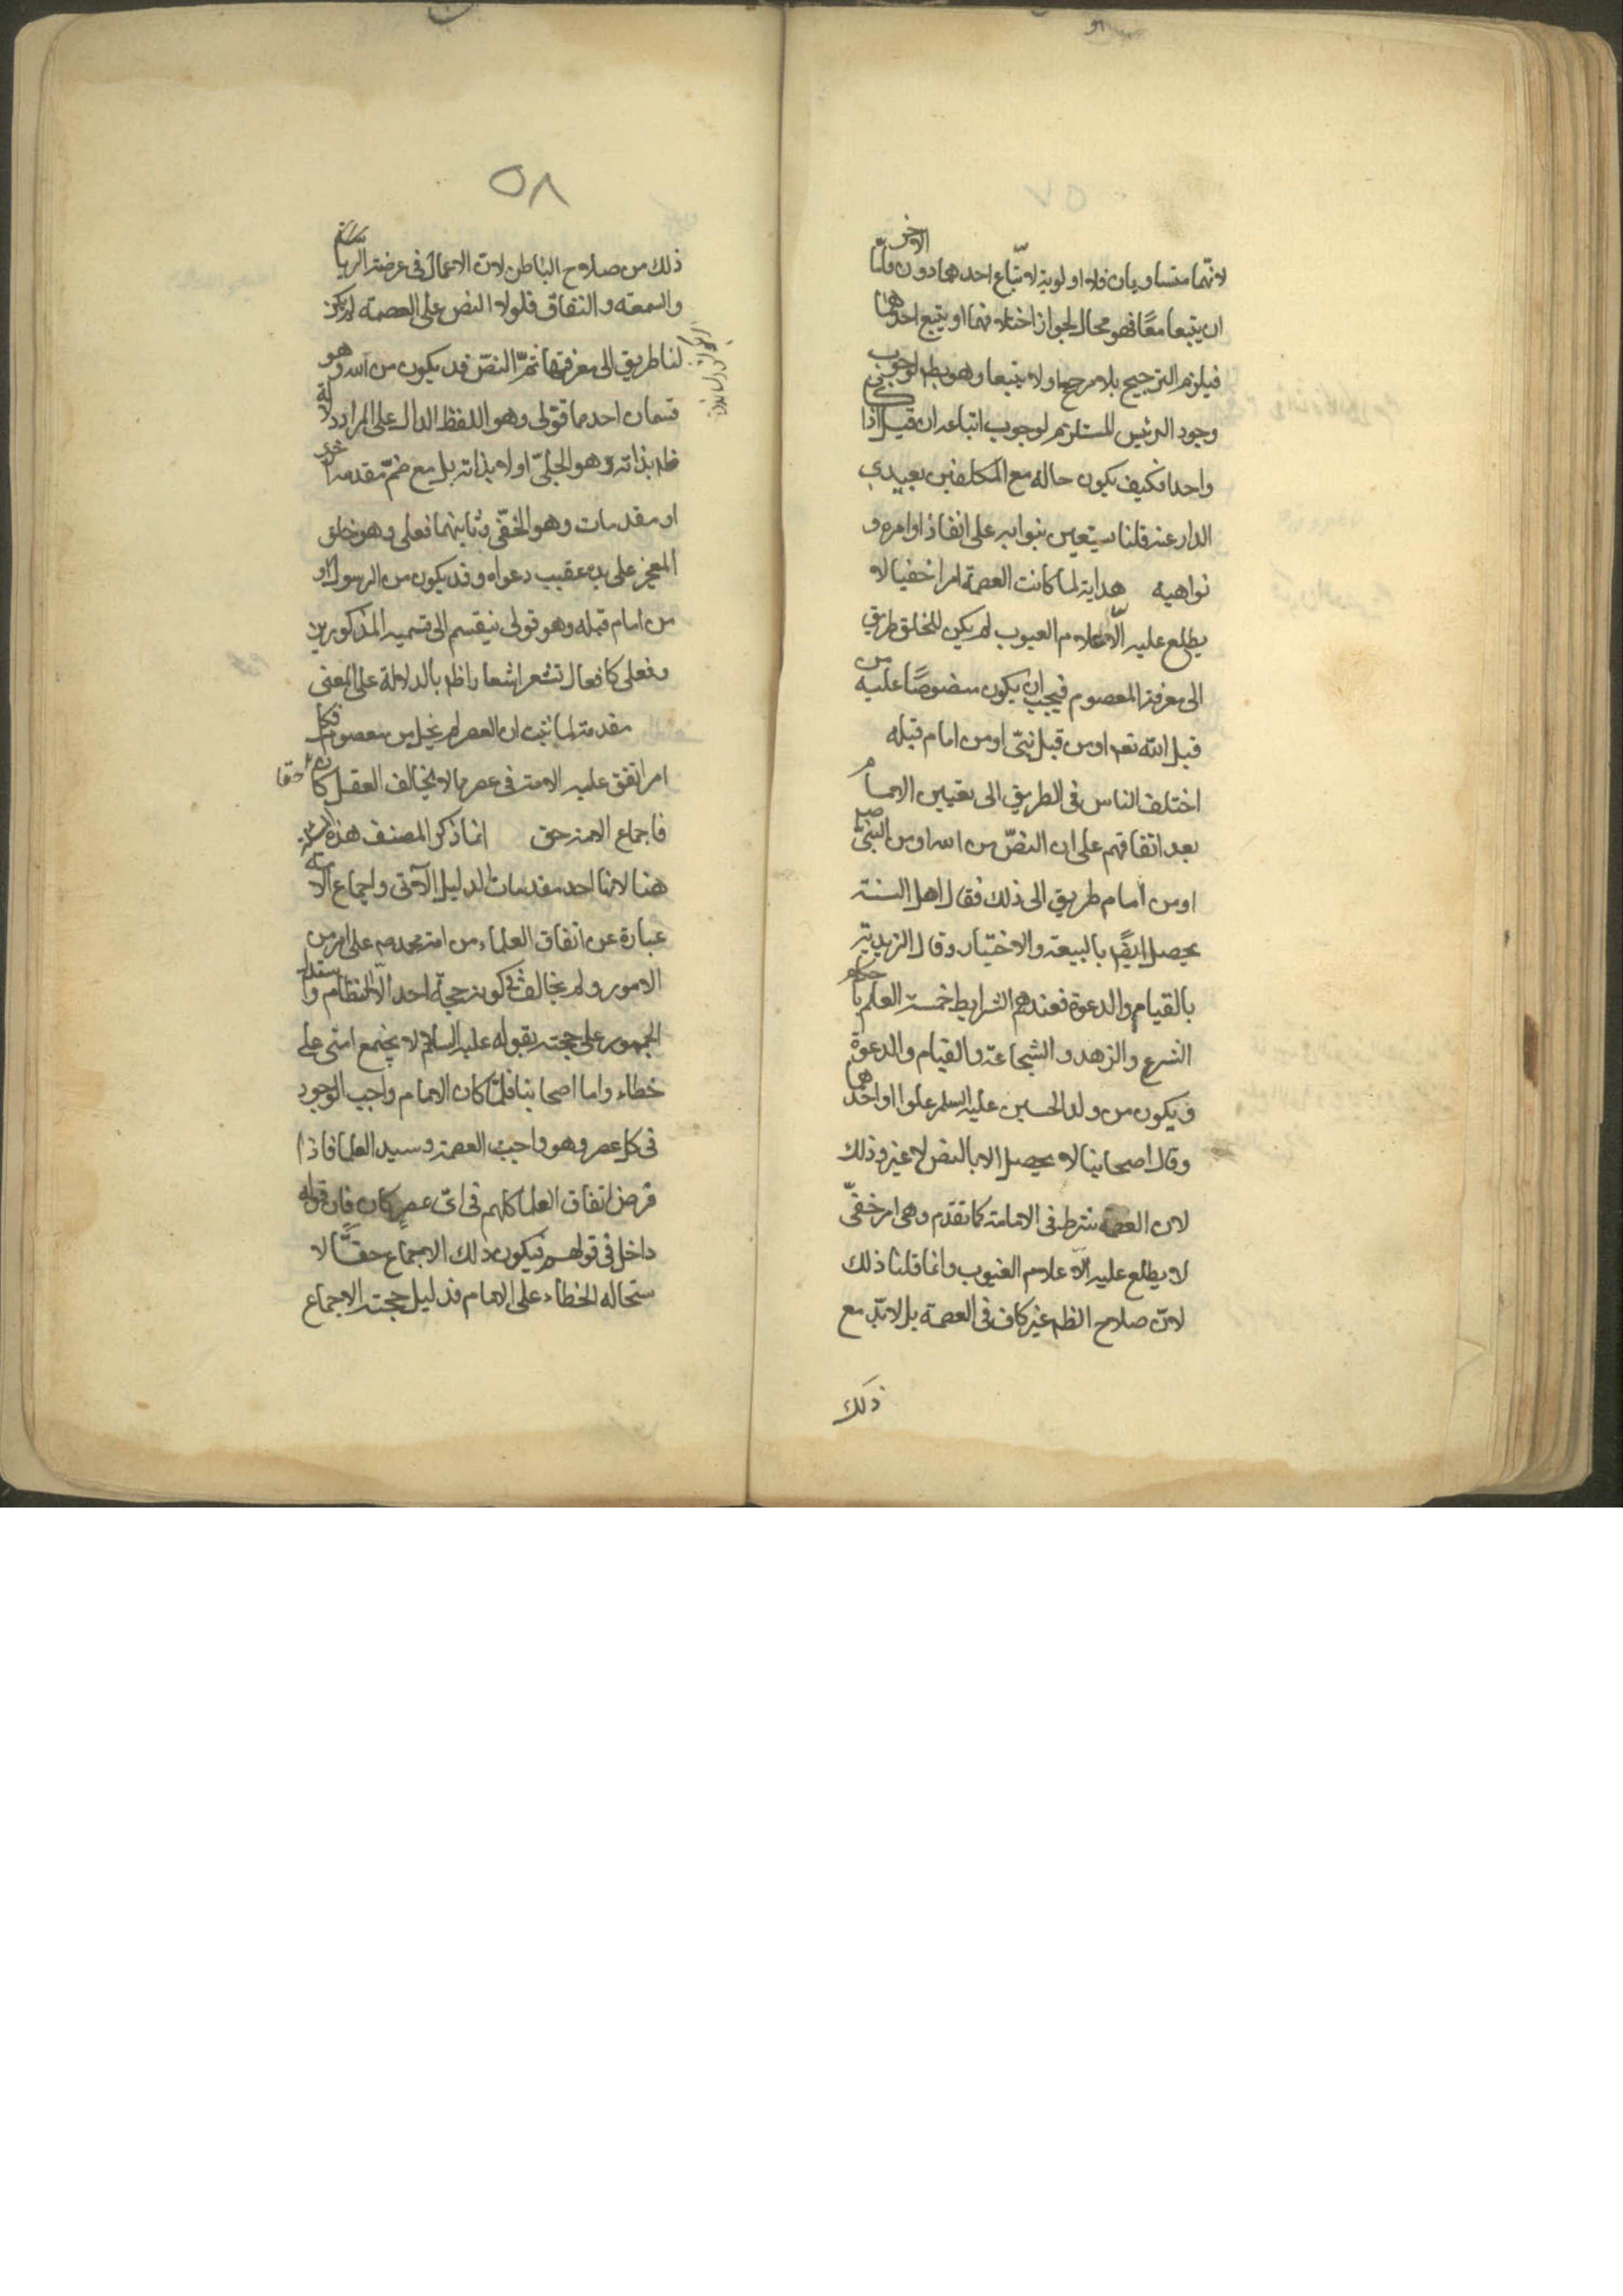 ٥٧
لانهما متساويان فلا اولوية لاتباع احدهما دون الاخر فامّا
ان يتبعا معًا فهو محال لجواز اختلافهما او يتبع احدهما
فيلزم الترجيح بلا مرجح او لا يتبعا وهو بط لوجوب
وجود الرئيس المستلزم لوجوب اتباعه ان قيل اذا كان
واحدا فكيف يكون حاله مع المكلفين بعيدي
الدار عنه قلنا يستعين بنوابه على انفاذ اوامره و
نواهيه هداية لما كانت العصمة امرا خفيا لا
يطلع عليه الّا علام الغيوب لم يكن للخلق طريق
الى معرفة المعصوم فيجب ان يكون منصوصًا عليه من
قبل الله تعه او من قبل نبيّ او من امام قبله
اختلف الناس فى الطريق الى تعيين الامام
بعد اتفاقهم على ان النصّ من الله او من النبيّ ص
او من امام طريق الى ذلك فقال اهل السنة
يحصل ايضًا بالبيعة والاختيار وقال الزيدية
بالقيام والدعوة فعندهم الشرايط خمسة العلم باحكام
الشرع والزهد والشجاعة والقيام والدعوة
ويكون من ولد الحسين عليه السلم علوا او احدهما
وقال اصحابنا لا يحصل الا بالنص لا غير وذلك
لان العصمة شرط فى الامامة كما تقدم وهى امر خفىّ
لا يطلع عليه الّا علام الغيوب وانما قلنا ذلك
لانّ صلاح الظم غير كاف فى العصمة بل لا بدّ مع
ذلك
٥٨
ذلك من صلاح الباطن لانّ الاعمال فى عرضة الرياء
والسمعة والنفاق فلولا النص على العصمة لم يكن
لنا طريق الى معرفتها ثمّ النصّ قد يكون من الله وهو
قسمان احدهما قولى وهو اللفظ الدال على المراد دلالة
ظه بذاته وهو الجلىّ او لا بذاته بل مع ضمّ مقدمة اخرى
او مقدمات وهو الخفىّ وثانيهما فعلى وهو خلق
المعجز على يده عقيب دعواه وقد يكون من الرسول او
من امام قبله وهو قولى ينقسم الى قسميه المذكورين
وفعلى كافعال تشعر اشعارا ظه بالدلالة على المعنى
مقدمة لما ثبت ان العصر لم يخل من معصوم فكل
امر اتفق عليه الامة فى عصر مما لا يخالف العقل كان حقا
فاجماع الامة حق انما ذكر المصنف هذه
هنا لانها احد مقدمات الدليل الآتى واجماع الامة
عبارة عن اتفاق العلماء من امة محمد ص على امر من
الامور ولم يخالف فى كونه حجة احد الّا النظام واستدل
الجمهور على حجته بقوله عليه السلام لا يجتمع امتى على
خطاء واما اصحابنا فلمّا كان الامام واجب الوجود
فى كل عصر وهو واجب العصمة وسيد العلما فاذا
فرض اتفاق العلما كلهم فى اىّ عصر كان فان قوله
داخل فى قولهم فيكون ذلك الاجماع حقًّا لا
ستحاله الخطاء على الامام فدليل حجته الاجماع